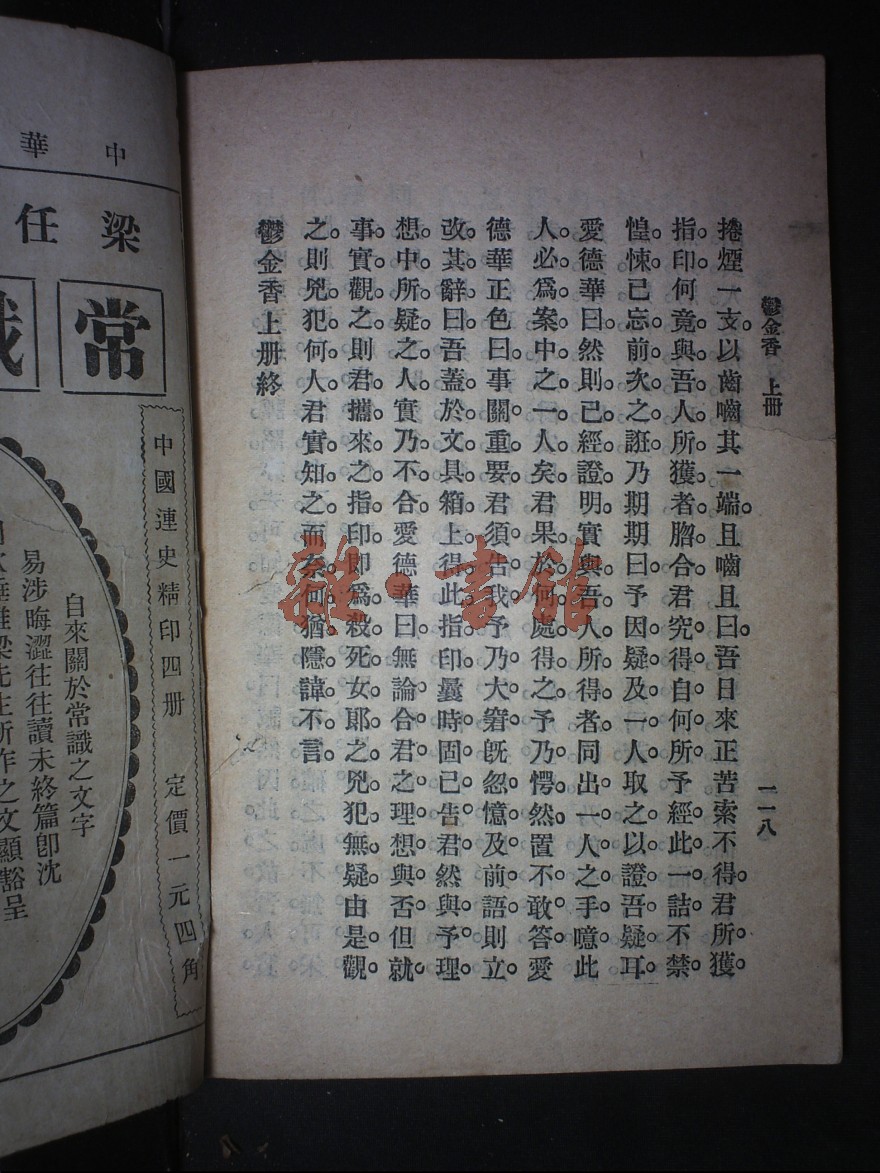 鬱金香　上册
一一八
捲煙一支。以齒嚙其一端。且嚙且曰。吾日來正苦索不得。君所獲。
指印何竟與吾人所獲者。脗合君究得自何所。予經此一詰。不禁
惶悚。已忘前次之誑。乃期期曰。予因疑及一人。取之以證吾疑耳。
愛德華曰。然則已經證明。實與吾人所得者。同出一人之手。噫此
人。必爲案中之一人矣。君果於何處得之。予乃愕然置不敢答。愛
德華正色曰。事關重要。君須告我。予乃大窘。旣忽憶及前語。則立
改其辭曰。吾蓋於文具箱上。得此指印。曩時固已告君。然與予理
想中所疑之人。實乃不合。愛德華曰。無論合君之理想與否。但就
事實觀之。則君攜來之指印。即爲殺死女郎之兇犯無疑。由是觀
之。則兇犯何人。君實知之。而奈何猶隱諱不言。
鬱金香上册終
中華
梁任
常識
中國連史精印四册　定價一元四角
自來關於常識之文字
易涉晦澀往往讀未終篇卽沈
梁先生所作之文顯豁呈
雜·書館